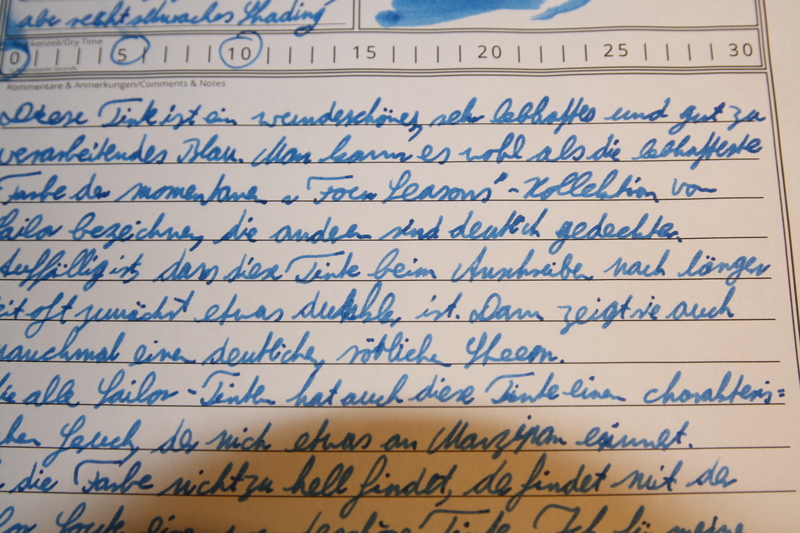 aber recht schwaches Shading
kenzeit/Dry Time
0 5 10 15 20 25 30
Kommentare & Anmerkungen/Comments & Notes
Diese Tinte ist ein wunderschönes, sehr lebhaftes und gut zu
verarbeitendes Blau. Man kann es wohl als die lebhafteste
Farbe der momentanen "Four Seasons"-Kollektion von
Sailor bezeichnen, die anderen sind deutlich gedeckter.
Auffällig ist, dass diese Tinte beim Anschreiben nach länger
eit oft zunächst etwas dunkler ist. Dann zeigt sie auch
manchmal einen deutlichen, rötlichen Sheen.
ie alle Sailor-Tinten hat auch diese Tinte einen charakteris=
chen Geruch, der mich etwas an Marzipan erinnert.
die Farbe nicht zu hell findet, der findet mit der
eine Tinte. Ich für meine